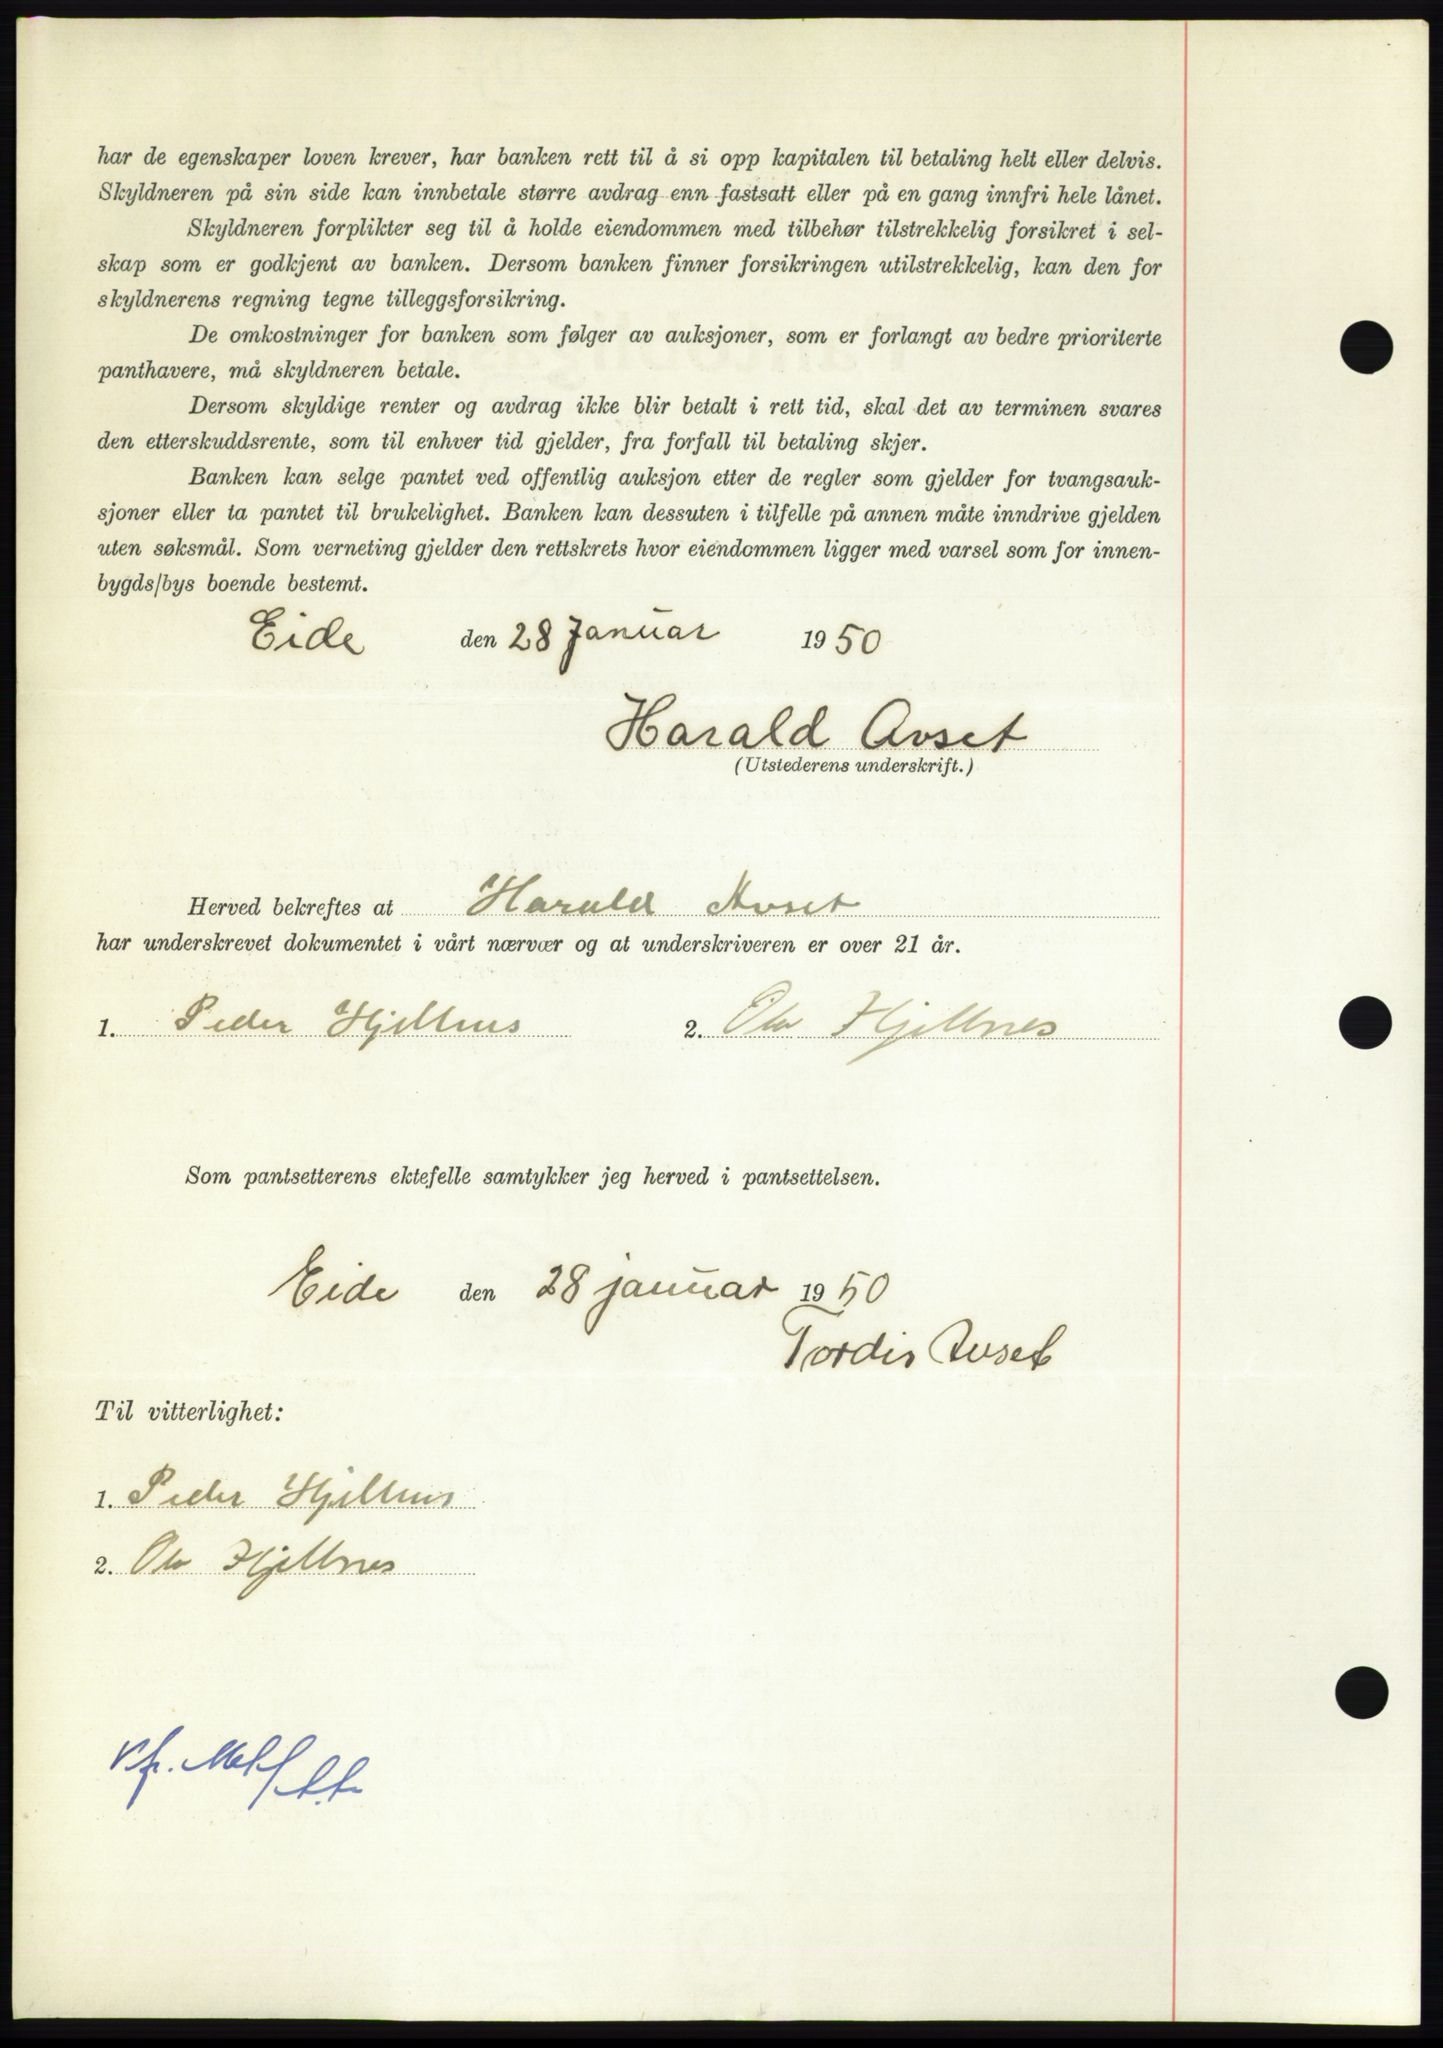 har de egenskaper loven krever, har banken rett til å si opp kapitalen til betaling helt eller delvis.
Skyldneren på sin side kan innbetale større avdrag enn fastsatt eller på en gang innfri hele lånet.
Skyldneren forplikter seg til å holde eiendommen med tilbehør tilstrekkelig forsikret i sel-
skap som er godkjent av banken. Dersom banken finner forsikringen utilstrekkelig, kan den for
skyldnerens regning tegne tilleggsforsikring.
De omkostninger for banken som følger av auksjoner, som er forlangt av bedre prioriterte
panthavere, må skyldneren betale.
Dersom skyldige renter og avdrag ikke blir betalt i rett tid, skal det av terminen svares
den etterskuddsrente, som til enhver tid gjelder, fra forfall til betaling skjer.
Banken kan selge pantet ved offentlig auksjon etter de regler som gjelder for tvangsauk-
sjoner eller ta pantet til brukelighet. Banken kan dessuten i tilfelle på annen måte inndrive gjelden
uten søksmål. Som verneting gjelder den rettskrets hvor eiendommen ligger med varsel som for innen-
bygds/bys boende bestemt.
Eide den 28 Januar 1950
Harald Avset
(Utstederens underskrift.)
Herved bekreftes at Harald Avset
har underskrevet dokumentet i vårt nærvær og at underskriveren er over 21 år.
1. Peder Hjellnes 2. Ola Hjellnes
Som pantsetterens ektefelle samtykker jeg herved i pantsettelsen.
Eide den 28 januar 1950
Tordis Avset
Til vitterlighet:
1. Peder Hjellnes
2. Ola Hjellnes